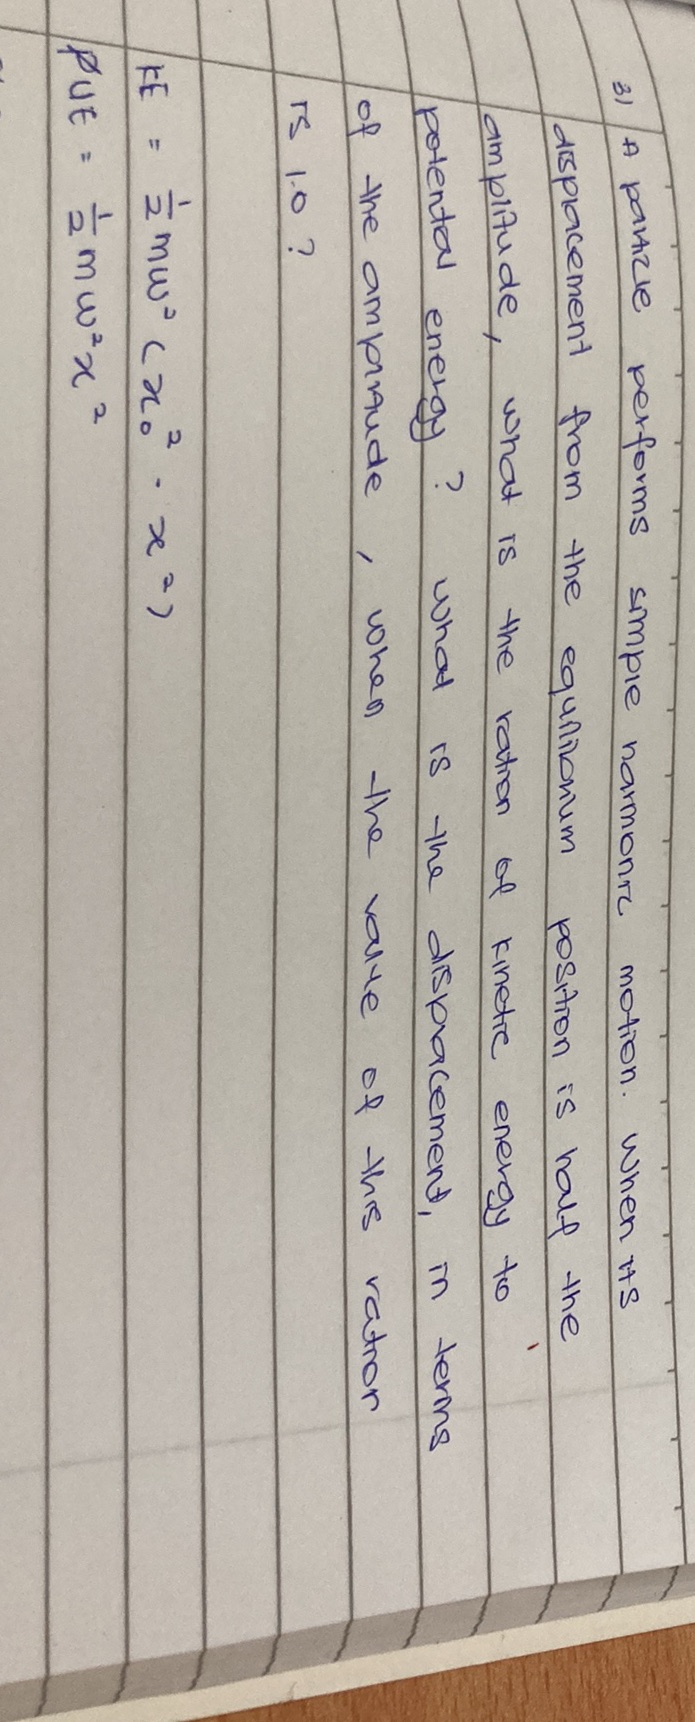 3) A particle performs simple harmonic motion. When its
displacement from the equilibrium position is half the
amplitude, what is the ration of kinetic energy to
potential energy? What is the displacement, in terms
of the amplitude, when the value of this ration
is 1.0?
KE = 1/2 mω² (x₀² - x²)
PUE = 1/2 mω²x²